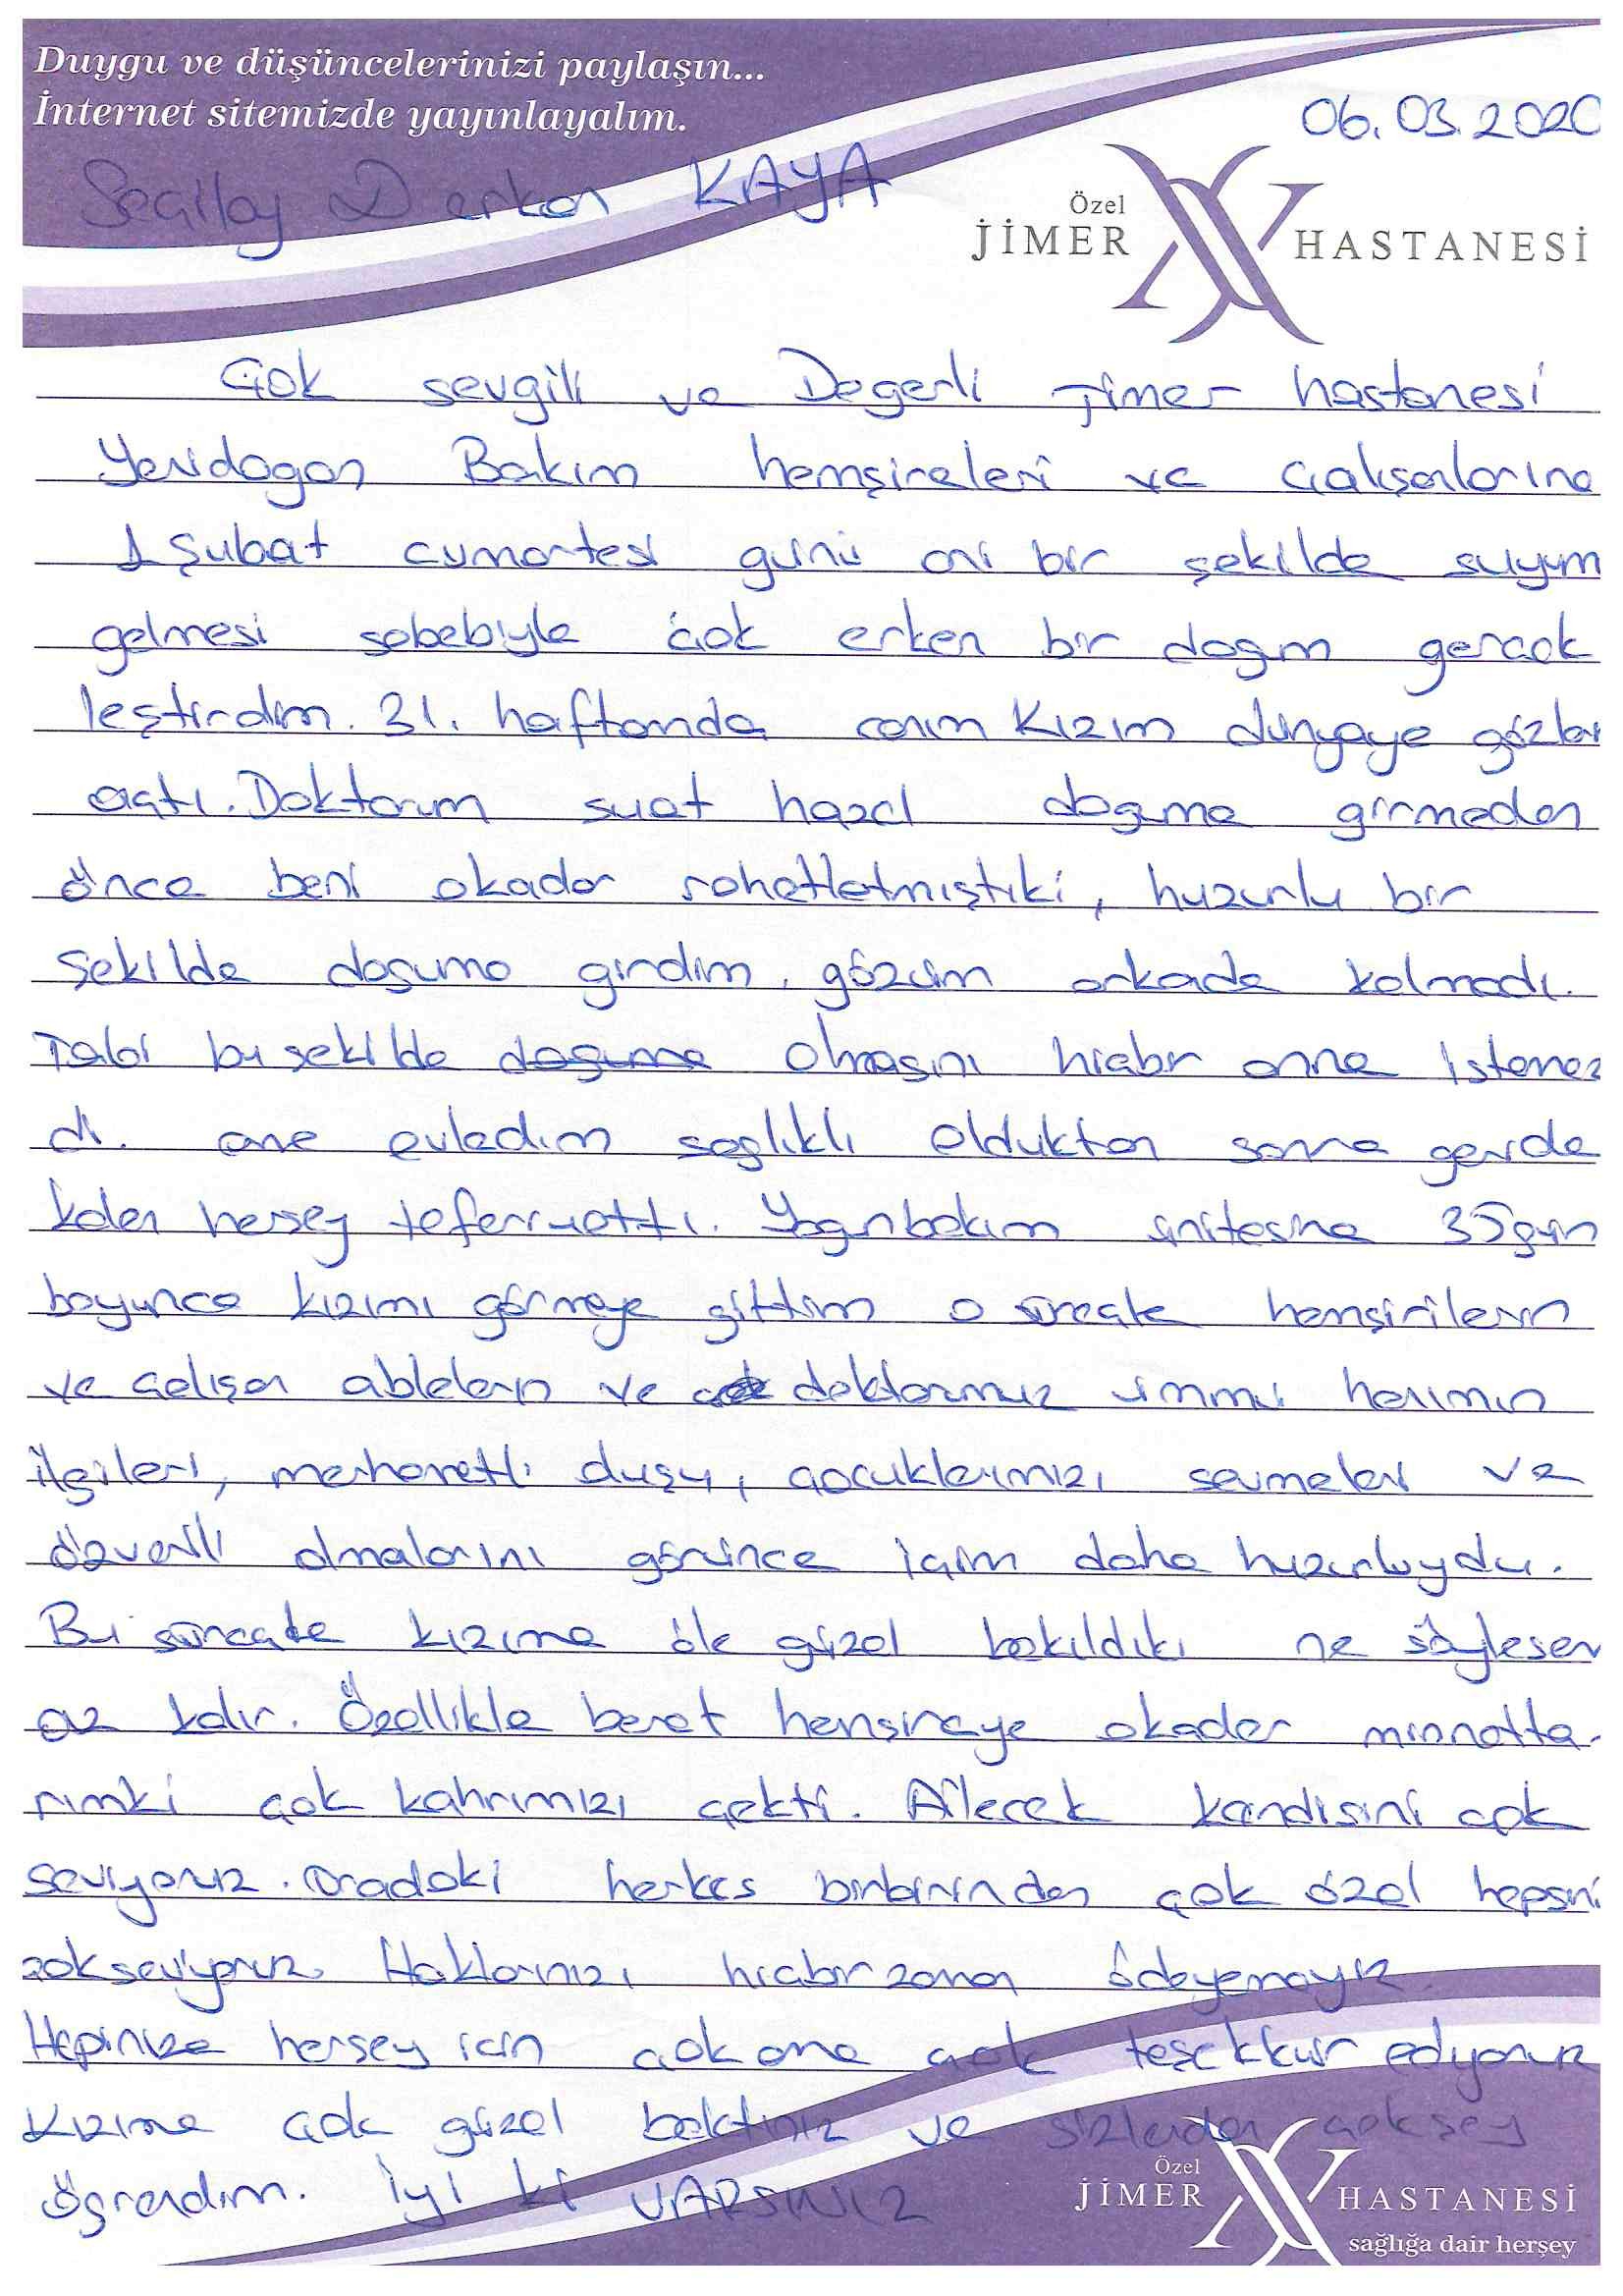 Duygu ve düşüncelerinizi paylaşın...
İnternet sitemizde yayınlayalım.
06.03.2020
Seçilay D erkan KAYA
Özel
JİMER HASTANESİ
Çok sevgili ve Degerli Jimer hastanesi
Yenidogan Bakım hemşireleri ve çalışanlarına
1 Şubat cumartesi günü ani bir şekilde suyum
gelmesi sebebiyle çok erken bir dogum gerçek
leştirdim. 31. haftamda canım Kızım dünyaya gözleri
açtı. Doktorum suat doguma girmeden
önce beni okadar rahatletmıştıki, huzurlu bir
Şekilde doguma girdim, gözüm arkada kalmadı.
Tabi bu sekilde doguma olmasını hiçbir anne Istemez
di. ama evladım saglıklı olduktan sonra geride
kalan herşey teferruattı. Yogunbakım ünitesine 35gün
boyunca kızımı görmeye gittim o süreçte hemşirilerin
ve çalışan ablaların ve doktorumuz ümmü hanımın
ilgileri, merhametli duşu, çocuklarımızı sevmeleri ve
özverili olmalarını görünce içim daha huzurluydu.
Bu süreçte kızıma öle güzel bakıldıki ne söylesem
az kalır. Özellikle berat hemşireye okadar minnetta-
rımki çok kahrımızı çekti. Ailecek kendisini çok
seviyoruz. Oradaki herkes birbirinden çok özel hepsini
çokseviyoruz. Haklarınızı hiçbir zaman ödeyemeyiz.
Hepinize hersey icin çok ama çok teşekkür ediyoruz
Kızıma çok güzel baktınız ve sizlerden çoksey
ögrendim. İyi ki VARSINIZ
Özel
JİMER HASTANESİ
sağlığa dair herşey